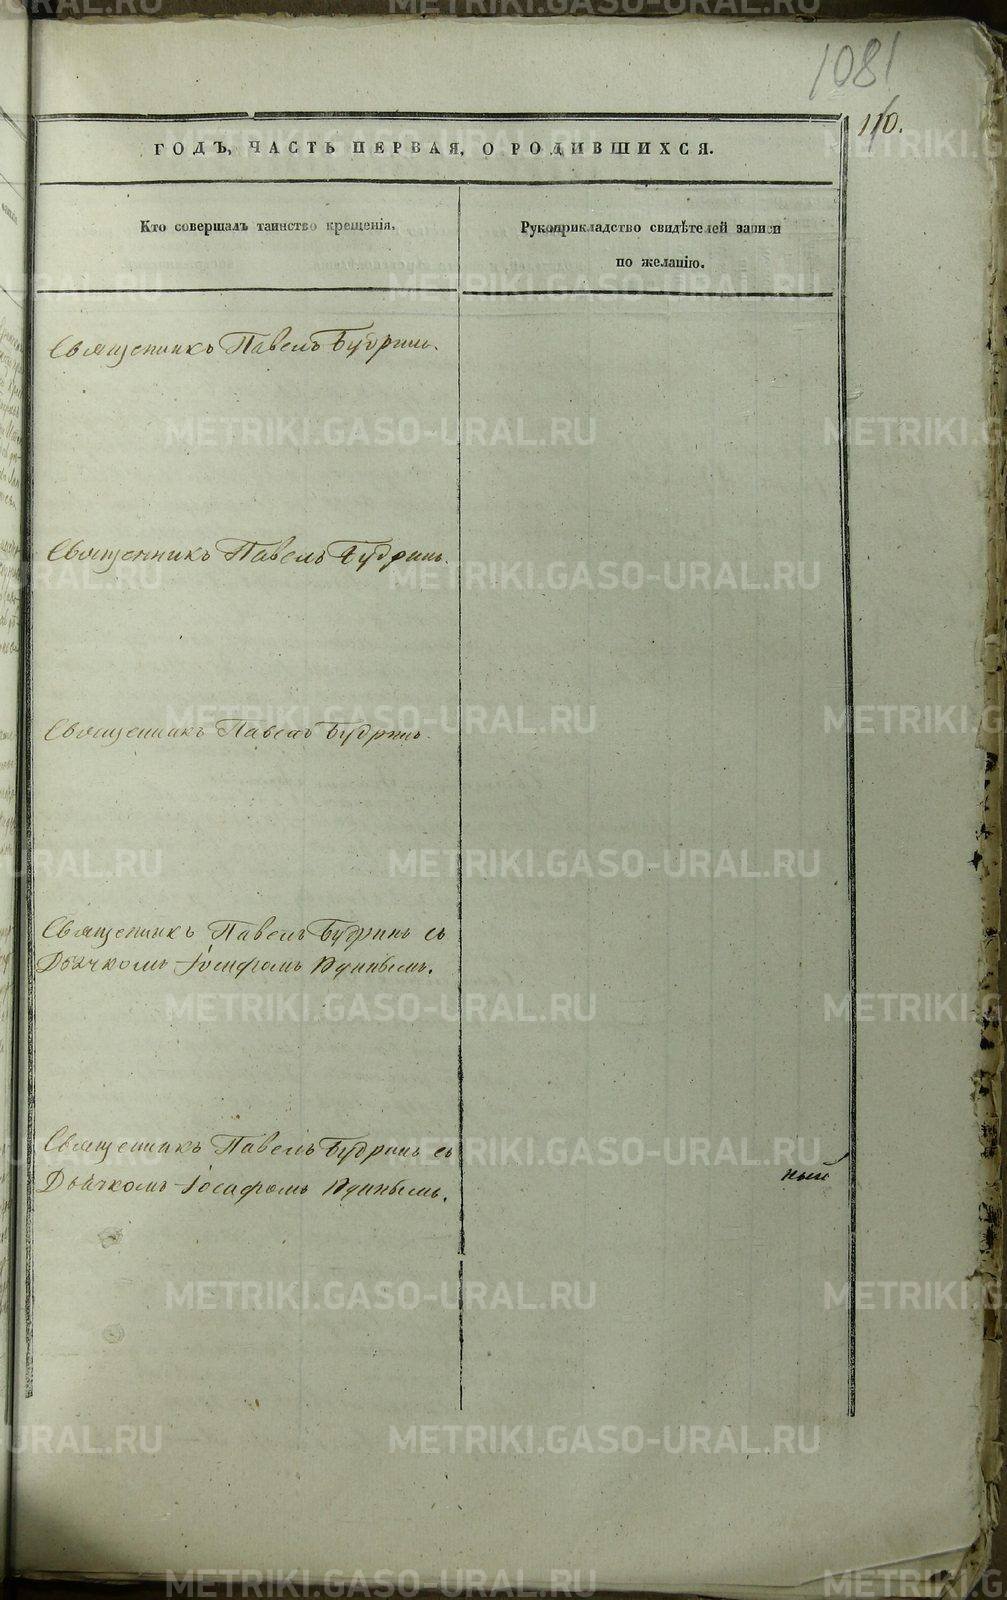 1081
110.
ГОДЪ, ЧАСТЬ ПЕРВАЯ, О РОДИВШИХСЯ.
Кто совершалъ таинство крещенія.
Рукоприкладство свидѣтелей записи
по желанію.
Священникъ Павелъ Будринъ.
Священникъ Павелъ Будринъ.
Священникъ Павелъ Будринъ.
Священникъ Павелъ Будринъ съ
Дьячкомъ Іосафомъ
Священникъ Павелъ Будринъ съ
Дьячкомъ Іосафомъ
ный
METRIKI.GASO-URAL.RU